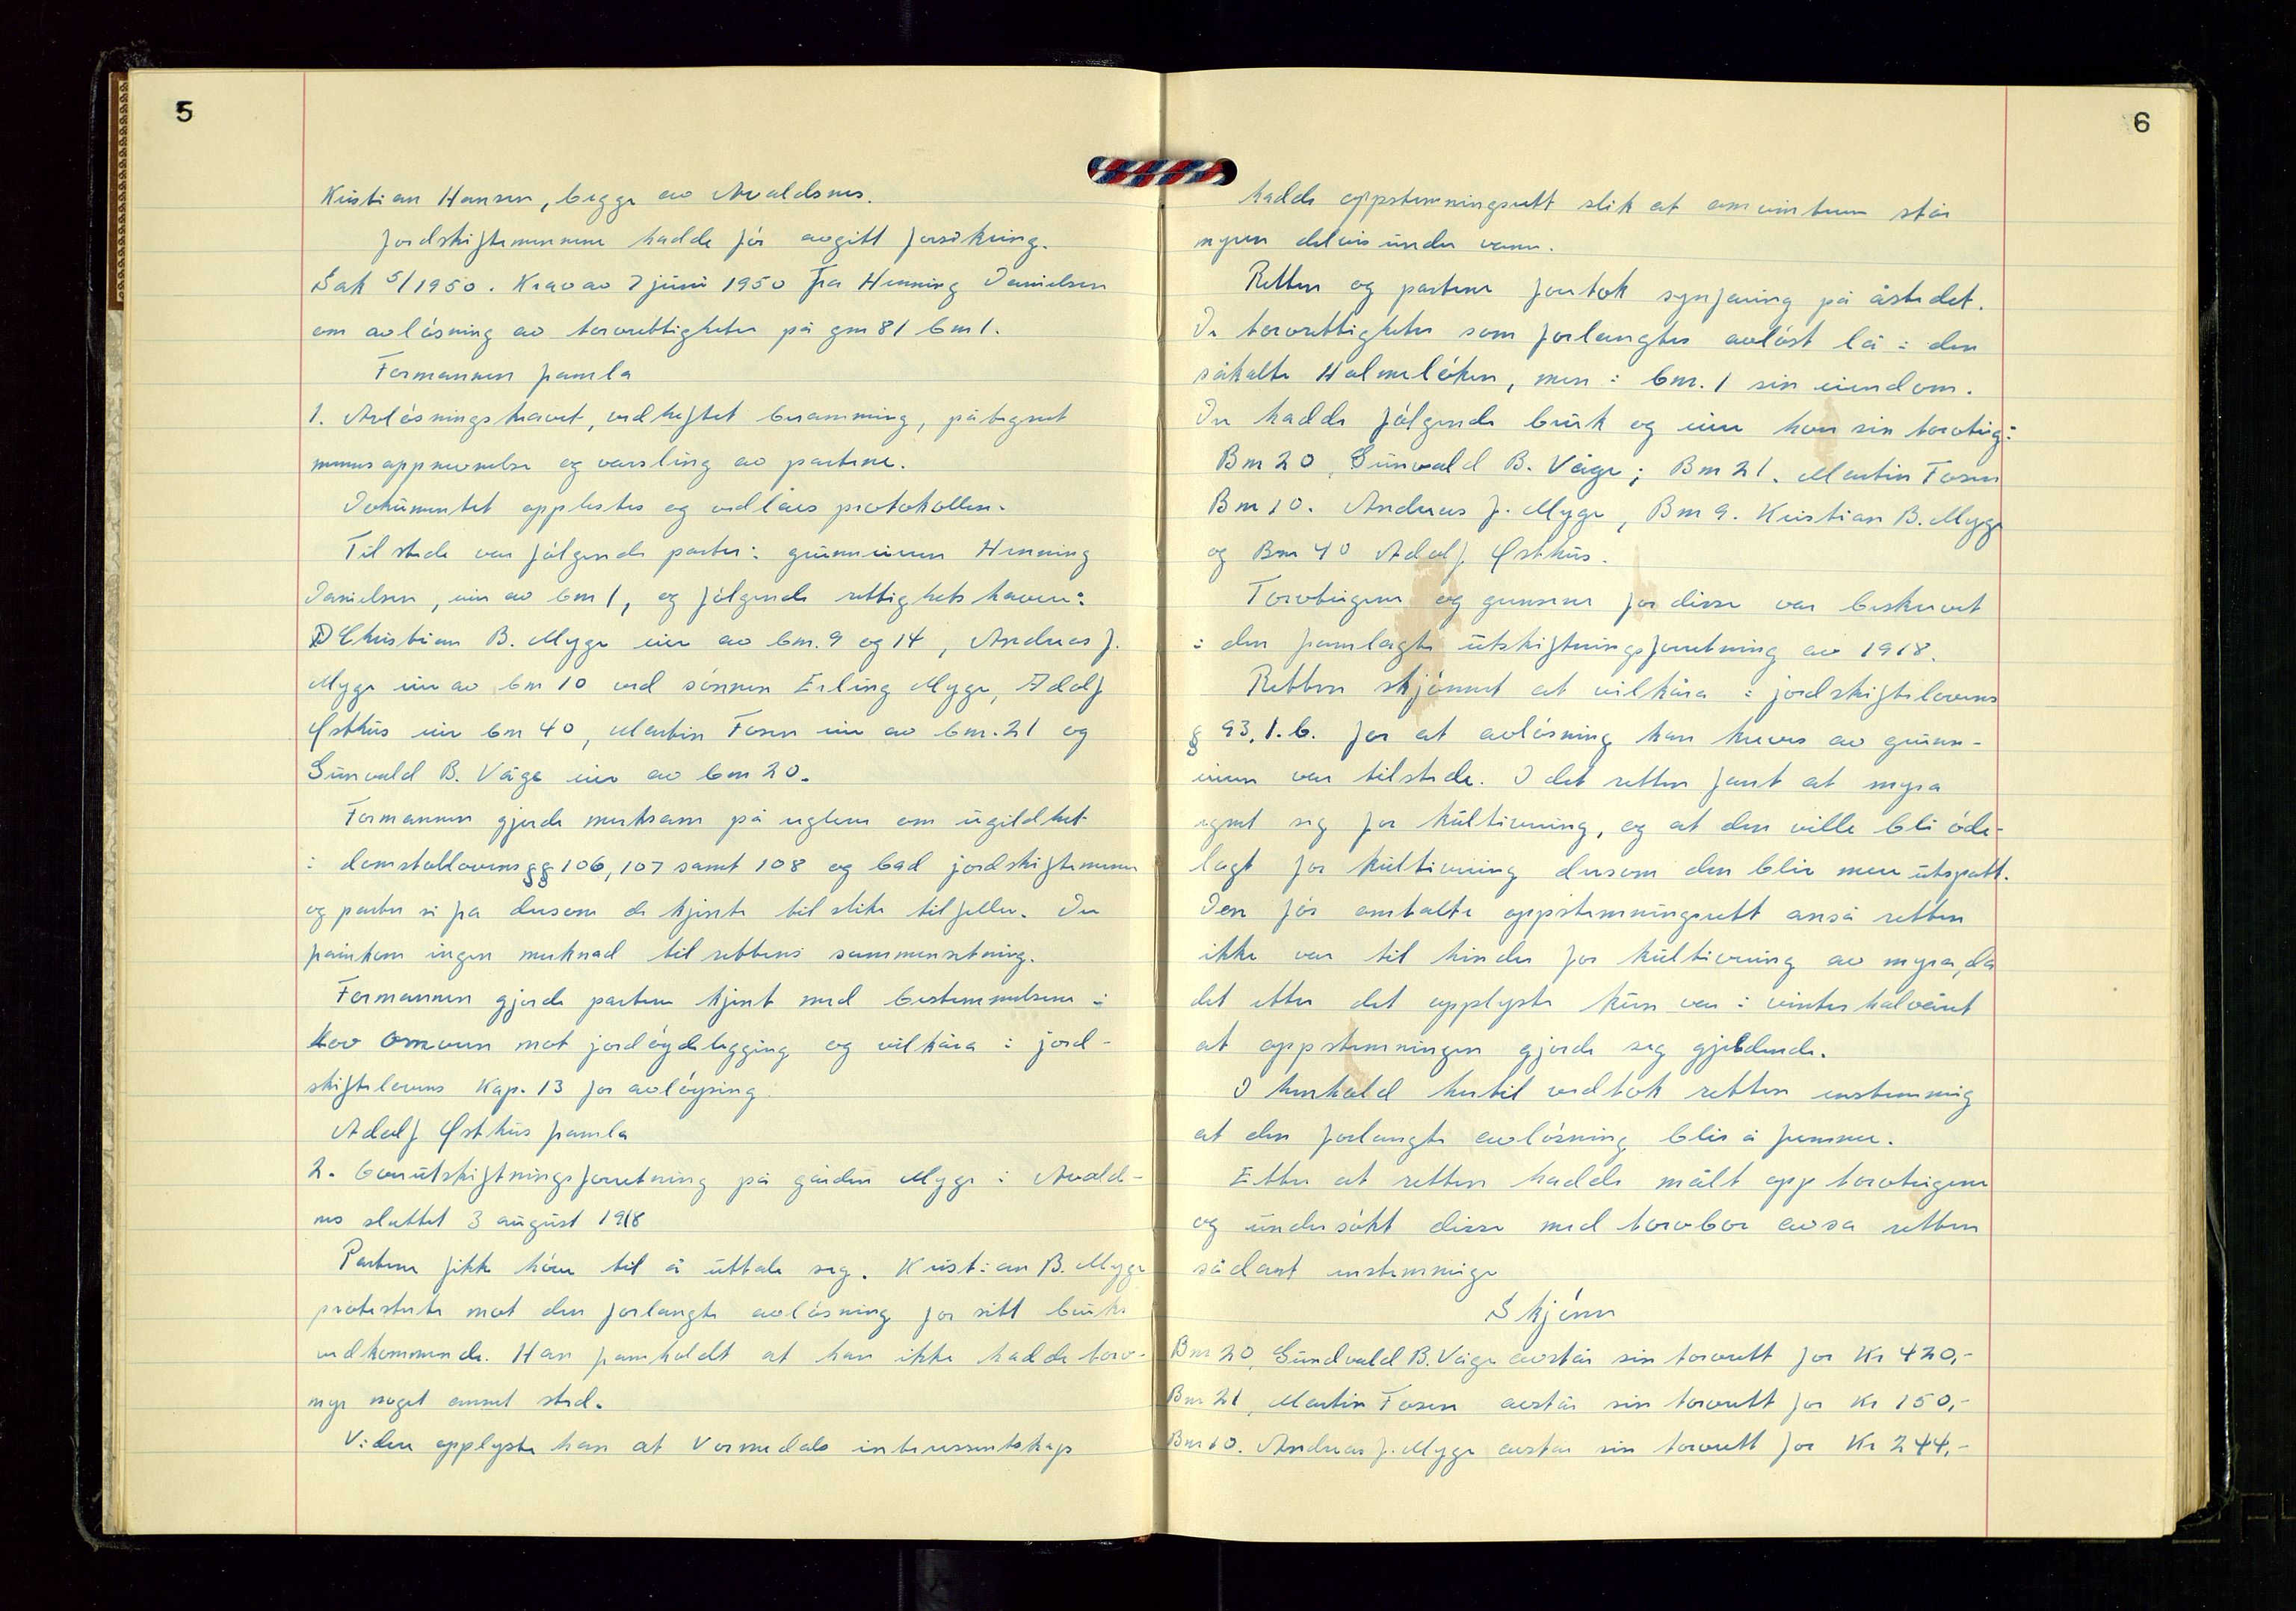 5
Kristian Hansen, begge av Avaldsnes.
Jordskiftemennene hadde før avgitt forsikring.
Sak 5/1950. Krav av 7 juni 1950 fra Henning Danielsen
om avløsning av torvrettigheter på gnr 81 bnr 1.
Formannen framla
1. Avløsningskravet, vedheftet beramming, påtegnet
mennsoppnevnelse og varsling av partene.
Dokumentet opplestes og vedlåes protokollen.
Til stede var følgende parter: grunneieren Henning
Danielsen, eier av bnr 1, og følgende rettighetshavere:
Christian B. Myge eier av bnr. 9 og 14, Andreas J.
Myge eier av bnr 10 ved sønnen Erling Myge, Adolf
Østhus eier bnr 40, Martin Fosen eier av bnr. 21 og
Gunvald B. Våge eier av bnr 20.
Formannen gjorde merksam på reglene om ugildhet
i domstollovens §§ 106, 107 samt 108 og bad jordskiftemenn
og parter si fra dersom de kjente til slike tilfeller. Der
framkom ingen merknad til rettens sammensetning.
Formannen gjorde partene kjent med bestemmelsene i
lov om vern mot jordøydelegging og vilkåra i jord-
skiftelovens Kap. 13 for avløysing
Adolf Østhus framla
2. Torvutskiftningsforretning på gården Myge i Avalds-
nes sluttet 3 august 1918
Partene fikk høve til å uttale seg. Kristian B. Myge
protesterte mot den forlangte avløsning for sitt bruks
vedkommende. Han framholdt at han ikke hadde torv-
myr noget annet sted.
Videre opplyste han at Vormedals interessentskap
6
hadde oppstemningsrett slik at om vinteren står
myren delvis under vann.
Retten og partene foretok synfaring på åstedet.
De torvrettigheter som forlangtes avløst lå i den
såkalte Holmeløken, men i bnr. 1 sin eiendom.
Der hadde følgende bruk og eier hver sin torvteig:
Bnr 20, Gunvald B. Våge; Bnr 21. Martin Fosen
Bnr 10. Andreas J. Myge, Bnr 9. Kristian B. Myge
og Bnr 40 Adolf Østhus.
Torvteigene og grensene for disse var beskrevet
i den framlagte utskiftningsforretning av 1918.
Retten skjønnet at vilkåra i jordskiftelovens
§ 93.1.b. for at avløsning kan kreves av grunn-
eieren var tilstede. I det retten fant at myra
egnet seg for kultivering, og at den ville bli øde-
lagt for kultivering dersom den blir mere utspatt.
Den før omtalte oppstemningsrett anså retten
ikke var til hinder for kultivering av myra, da
det etter det opplyste kun var i vinterhalvåret
at oppstemningen gjorde seg gjeldende.
I henhold hertil vedtok retten enstemmig
at den forlangte avløsning blir å fremme.
Etter at retten hadde målt opp torvteigene
og undersøkt disse med torvbor avsa retten
sådant enstemmige
Skjønn
Bnr 20, Gundvald B. Våge avstår sin torvrett for Kr 420,-
Bnr 21, Martin Fosen avstår sin torvrett for Kr 150,-
Bnr 10. Andreas J. Myge avstår sin torvrett for Kr 244,-